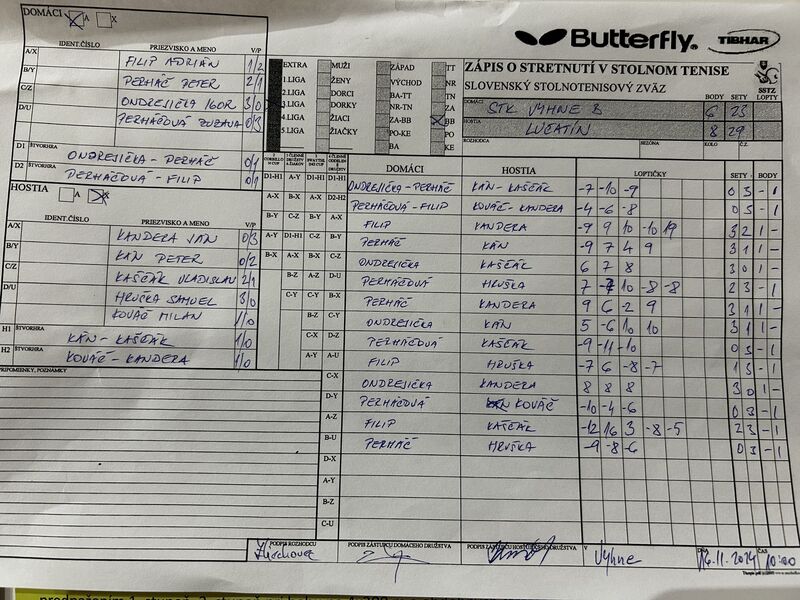 DOMÁCI X A X
Butterfly. TIBHAR
IDENT.ČÍSLO PRIEZVISKO A MENO V/P
A/X FILIP ADRIÁN 1/2
B/Y PERHÁČ PETER 2/1
C/Z ONDREJIČKA IGOR 3/0
D/U PERHÁČOVÁ ZUZANA 0/3
D1 ŠTVORHRA ONDREJIČKA - PERHÁČ 0/1
D2 ŠTVORHRA PERHÁČOVÁ - FILIP 0/1
EXTRA MUŽI ZÁPAD TT
1.LIGA ŽENY VÝCHOD NR
2.LIGA DORCI BA-TT TN
3.LIGA DORKY NR-TN ZA
4.LIGA ŽIACI ZA-BB BB
5.LIGA ŽIAČKY PO-KE PO
BA KE
ZÁPIS O STRETNUTÍ V STOLNOM TENISE
SLOVENSKÝ STOLNOTENISOVÝ ZVÄZ
SSTZ
DOMÁCI STK VYHNE B BODY 6 SETY 23 LOPTY
HOSTIA LUČATÍN 8 29
ROZHODCA SEZÓNA KOLO Č.Z.
HOSTIA A X
IDENT.ČÍSLO PRIEZVISKO A MENO V/P
A/X KANDERA JÁN 0/3
B/Y KÁN PETER 0/2
C/Z KAŠČÁK VLADISLAV 2/1
D/U HRUŠKA SAMUEL 3/0
KOVÁČ MILAN 1/0
H1 ŠTVORHRA KÁN - KAŠČÁK 1/0
H2 ŠTVORHRA KOVÁČ - KANDERA 1/0
PRIPOMIENKY, POZNÁMKY
DOMÁCI HOSTIA LOPTIČKY SETY BODY
D1-H1 D1-H1 D1-H1 ONDREJIČKA - PERHÁČ KÁN - KAŠČÁK -7 -10 -9 0 3 - 1
A-X B-X A-X D2-H2 PERHÁČOVÁ - FILIP KOVÁČ - KANDERA -4 -6 -8 0 3 - 1
B-Y C-Z B-Y A-X FILIP KANDERA -9 9 10 -10 19 3 2 1 -
A-Y D1-H1 C-Z B-Y PERHÁČ KÁN -9 7 4 9 3 1 1 -
B-X A-X B-X C-Z ONDREJIČKA KAŠČÁK 6 7 8 3 0 1 -
B-Z A-Z D-U PERHÁČOVÁ HRUŠKA 7 -7 10 -8 -8 2 3 - 1
C-Y C-Y B-X PERHÁČ KANDERA 9 6 -2 9 3 1 1 -
B-Z C-Y ONDREJIČKA KÁN 5 -6 10 10 3 1 1 -
C-X D-Z PERHÁČOVÁ KAŠČÁK -9 -11 -10 0 3 - 1
A-Y A-U FILIP HRUŠKA -7 6 -8 -7 1 3 - 1
C-X ONDREJIČKA KANDERA 8 8 8 3 0 1 -
D-Y PERHÁČOVÁ KOVÁČ -10 -4 -6 0 3 - 1
A-Z FILIP KAŠČÁK -12 16 3 -8 -5 2 3 - 1
B-U PERHÁČ HRUŠKA -9 -8 -6 0 3 - 1
D-X
A-Y
B-Z
C-U
PODPIS ROZHODCU PODPIS ZÁSTUPCU DOMÁCEHO DRUŽSTVA PODPIS ZÁSTUPCU HOSŤUJÚCEHO DRUŽSTVA V Vyhne DŇA 16.11.2024 ČAS 10:00